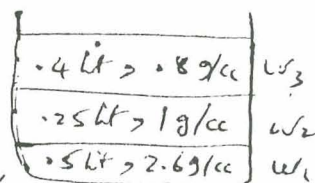 .4 lit, .8 g/cc W3
.25 lit, 1 g/cc W2
.5 lit, 2.6 g/cc W1